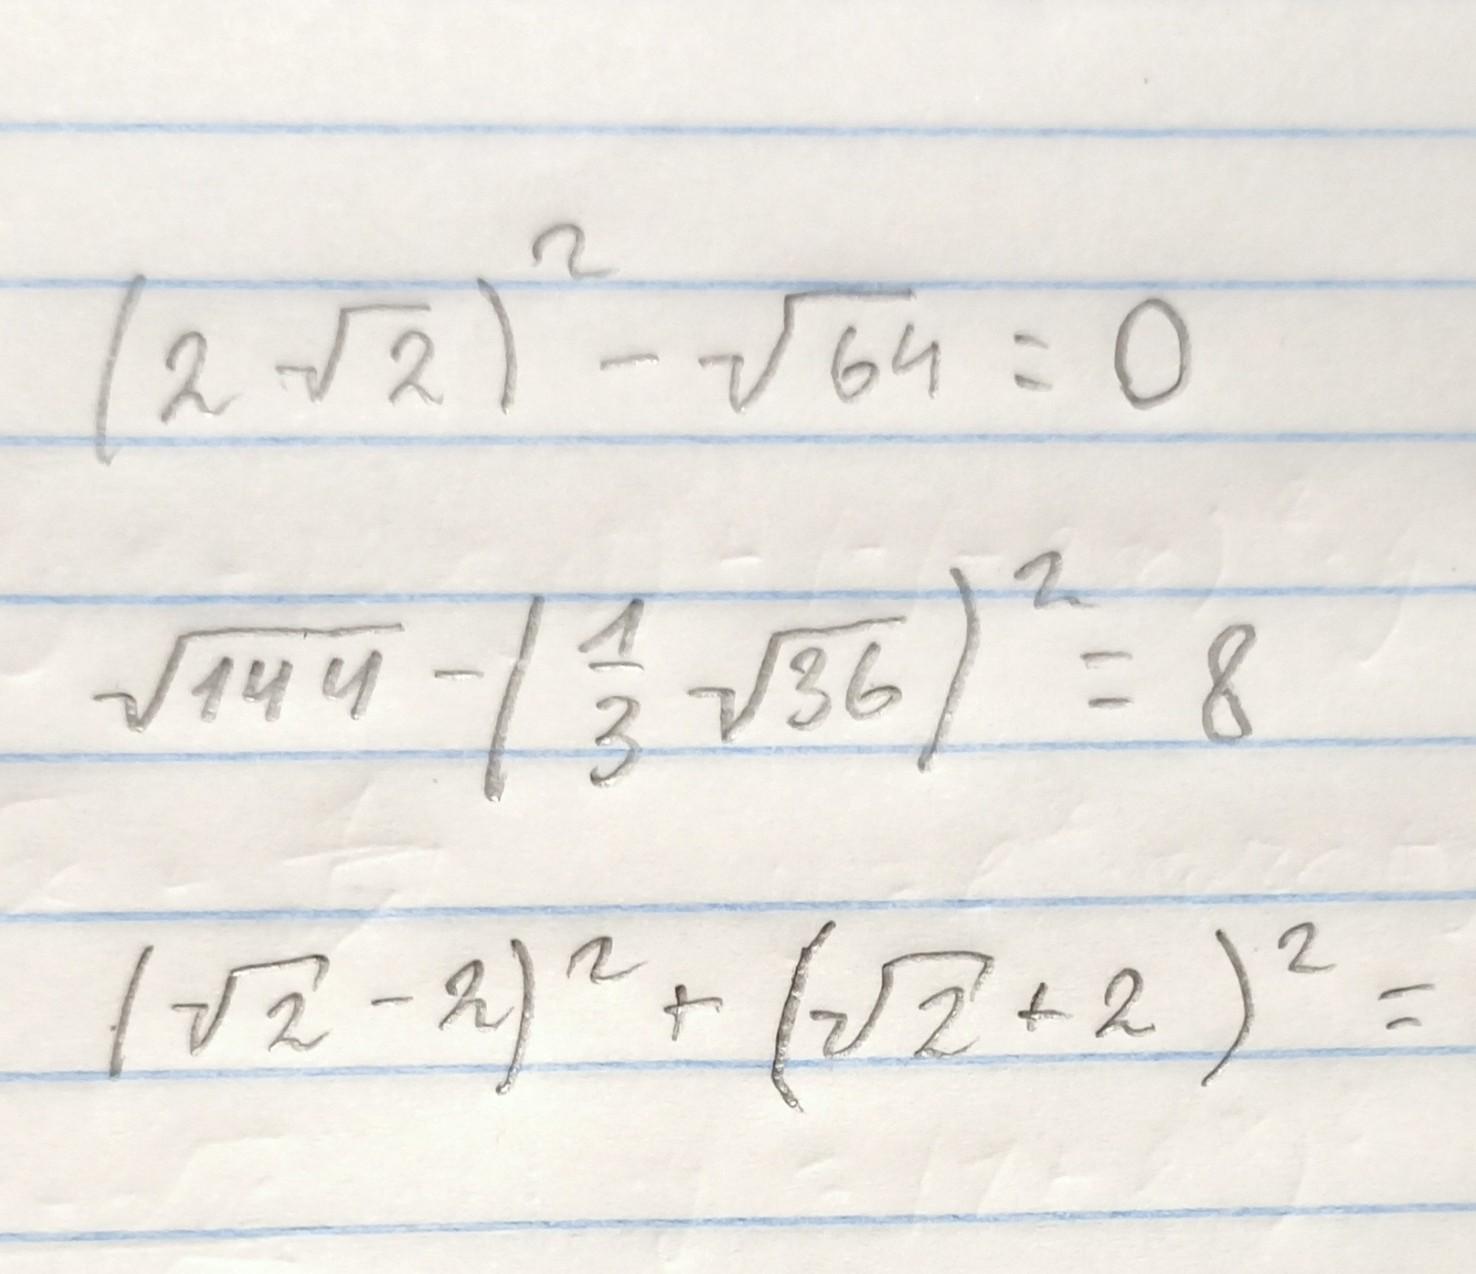 (2√2)² - √64 = 0
√144 - (1/3 √36)² = 8
(√2 - 2)² + (√2 + 2)² =